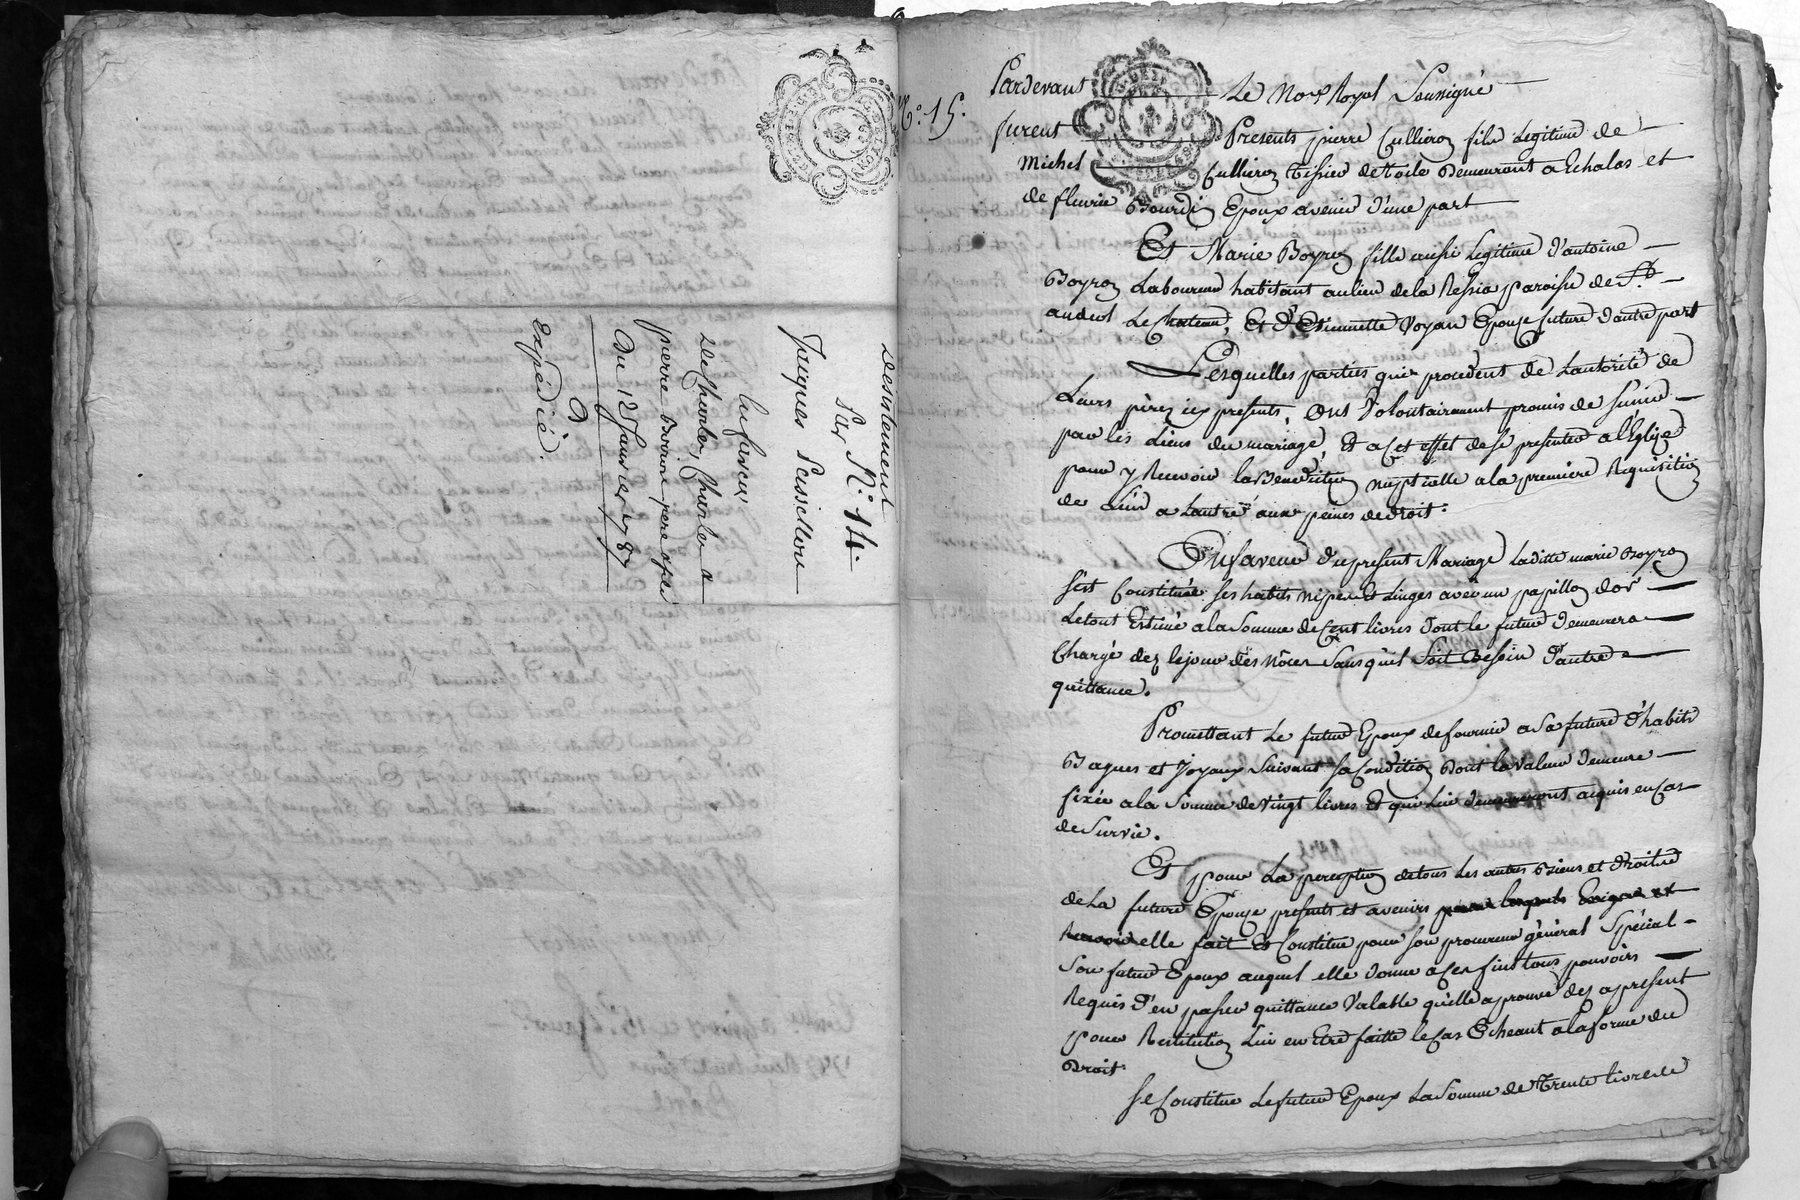 desistement
Sur N.º 14.
Jacques
En faveur
pierre
Du 12 Janvier 1787
Expédié.
Nº. 15.
Pardevant Le Nore. Royal Soussigné
furent Presents pierre Cullieron fils Legitime de
Michel Cullieron Tissier de toile Demeurant a Echalas et
de fleurie Bourdin Epoux avenir d'une part
Et Marie Boyron fille aussi Legitime d'antoine
Boyron Laboureur habitant au lieu de la Ressia paroisse de St.
andeol Le Chateau, Et d'Etiennette Voyan Epouse future d'autre part
Lesquelles parties qui procedent de L'autorité de
Leurs pères icy presents, Ont Volontairement promis de s'unir
par les Liens du mariage, Et a Cet effet de se presenter a L'Eglize
pour y Recevoir la Benediction nuptialle a la premiere Requisition
de L'un a L'autre aux peines de droit.
En faveur du present Mariage Laditte marie Boyron
s'est Constituée ses habits nipes et Linges avec un papillon d'or
Le tout Estimé a la Somme de Cent livres dont le futur demeurera
Chargé dez le jour des Nôces Sans qu'il Soit Besoin d'autre
quittance.
Promettant Le futur Epoux de fournir a Sa future d'habits
Bagues et Joyaux Suivant Sa Condition dont la Valeur demeure
fixée a la Somme de Vingt livres Et qui Lui demeureront acquis en Cas
de Survie.
Et pour La perception de tous Les autres Biens et Droits
de La future Epouse presents et avenirs
elle fait Et Constitue pour Son procureur général Spécial
Son futur Epoux auquel elle donne a Ces fins tous pouvoirs
Requis d'en passer quittance Valable qu'elle aprouve dez apresent
pour Restitution Lui en Etre faitte le Cas Echeant a la forme du
Droit
Se Constitue Le futur Epoux La Somme de Trente livres de